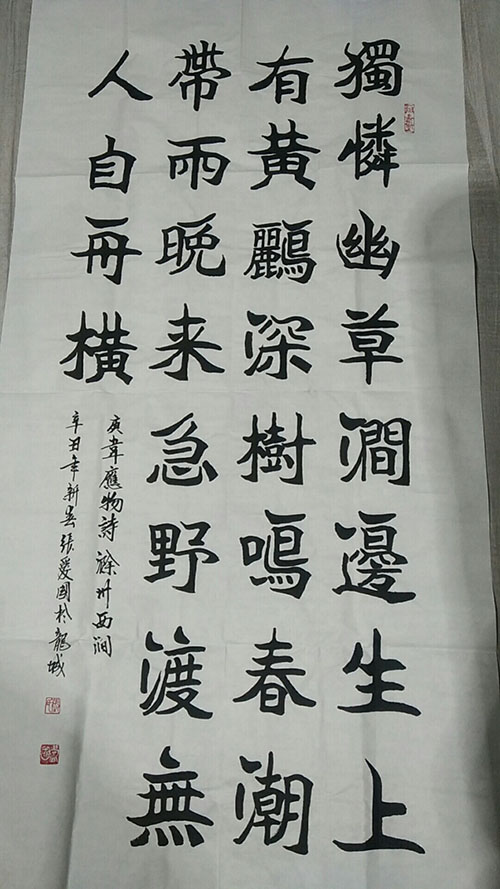 獨憐幽草澗邊生上
有黄鸝深樹鳴春潮
帶雨晚来急野渡無
人自舟横
唐韋應物詩滁州西涧
辛丑年新春張愛國於龍城